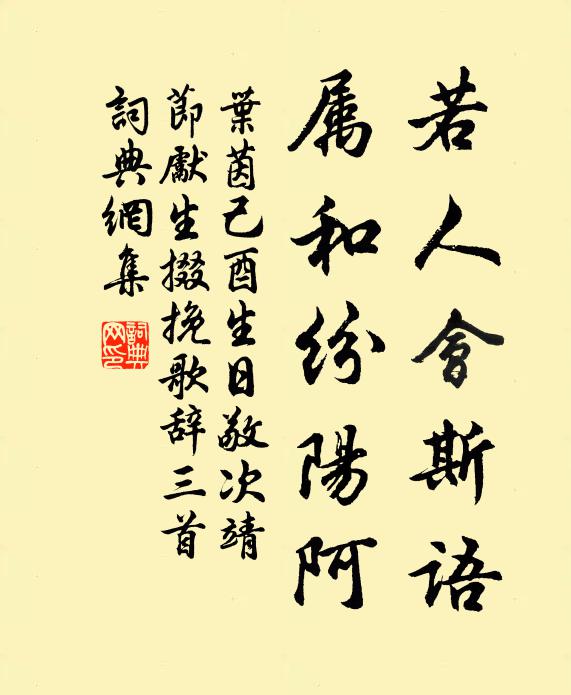 若人會斯語
属和纷陽阿
葉茵己酉生日敬次靖
節獻生掇挽歌辞三首
詞典網集
詞典
网印